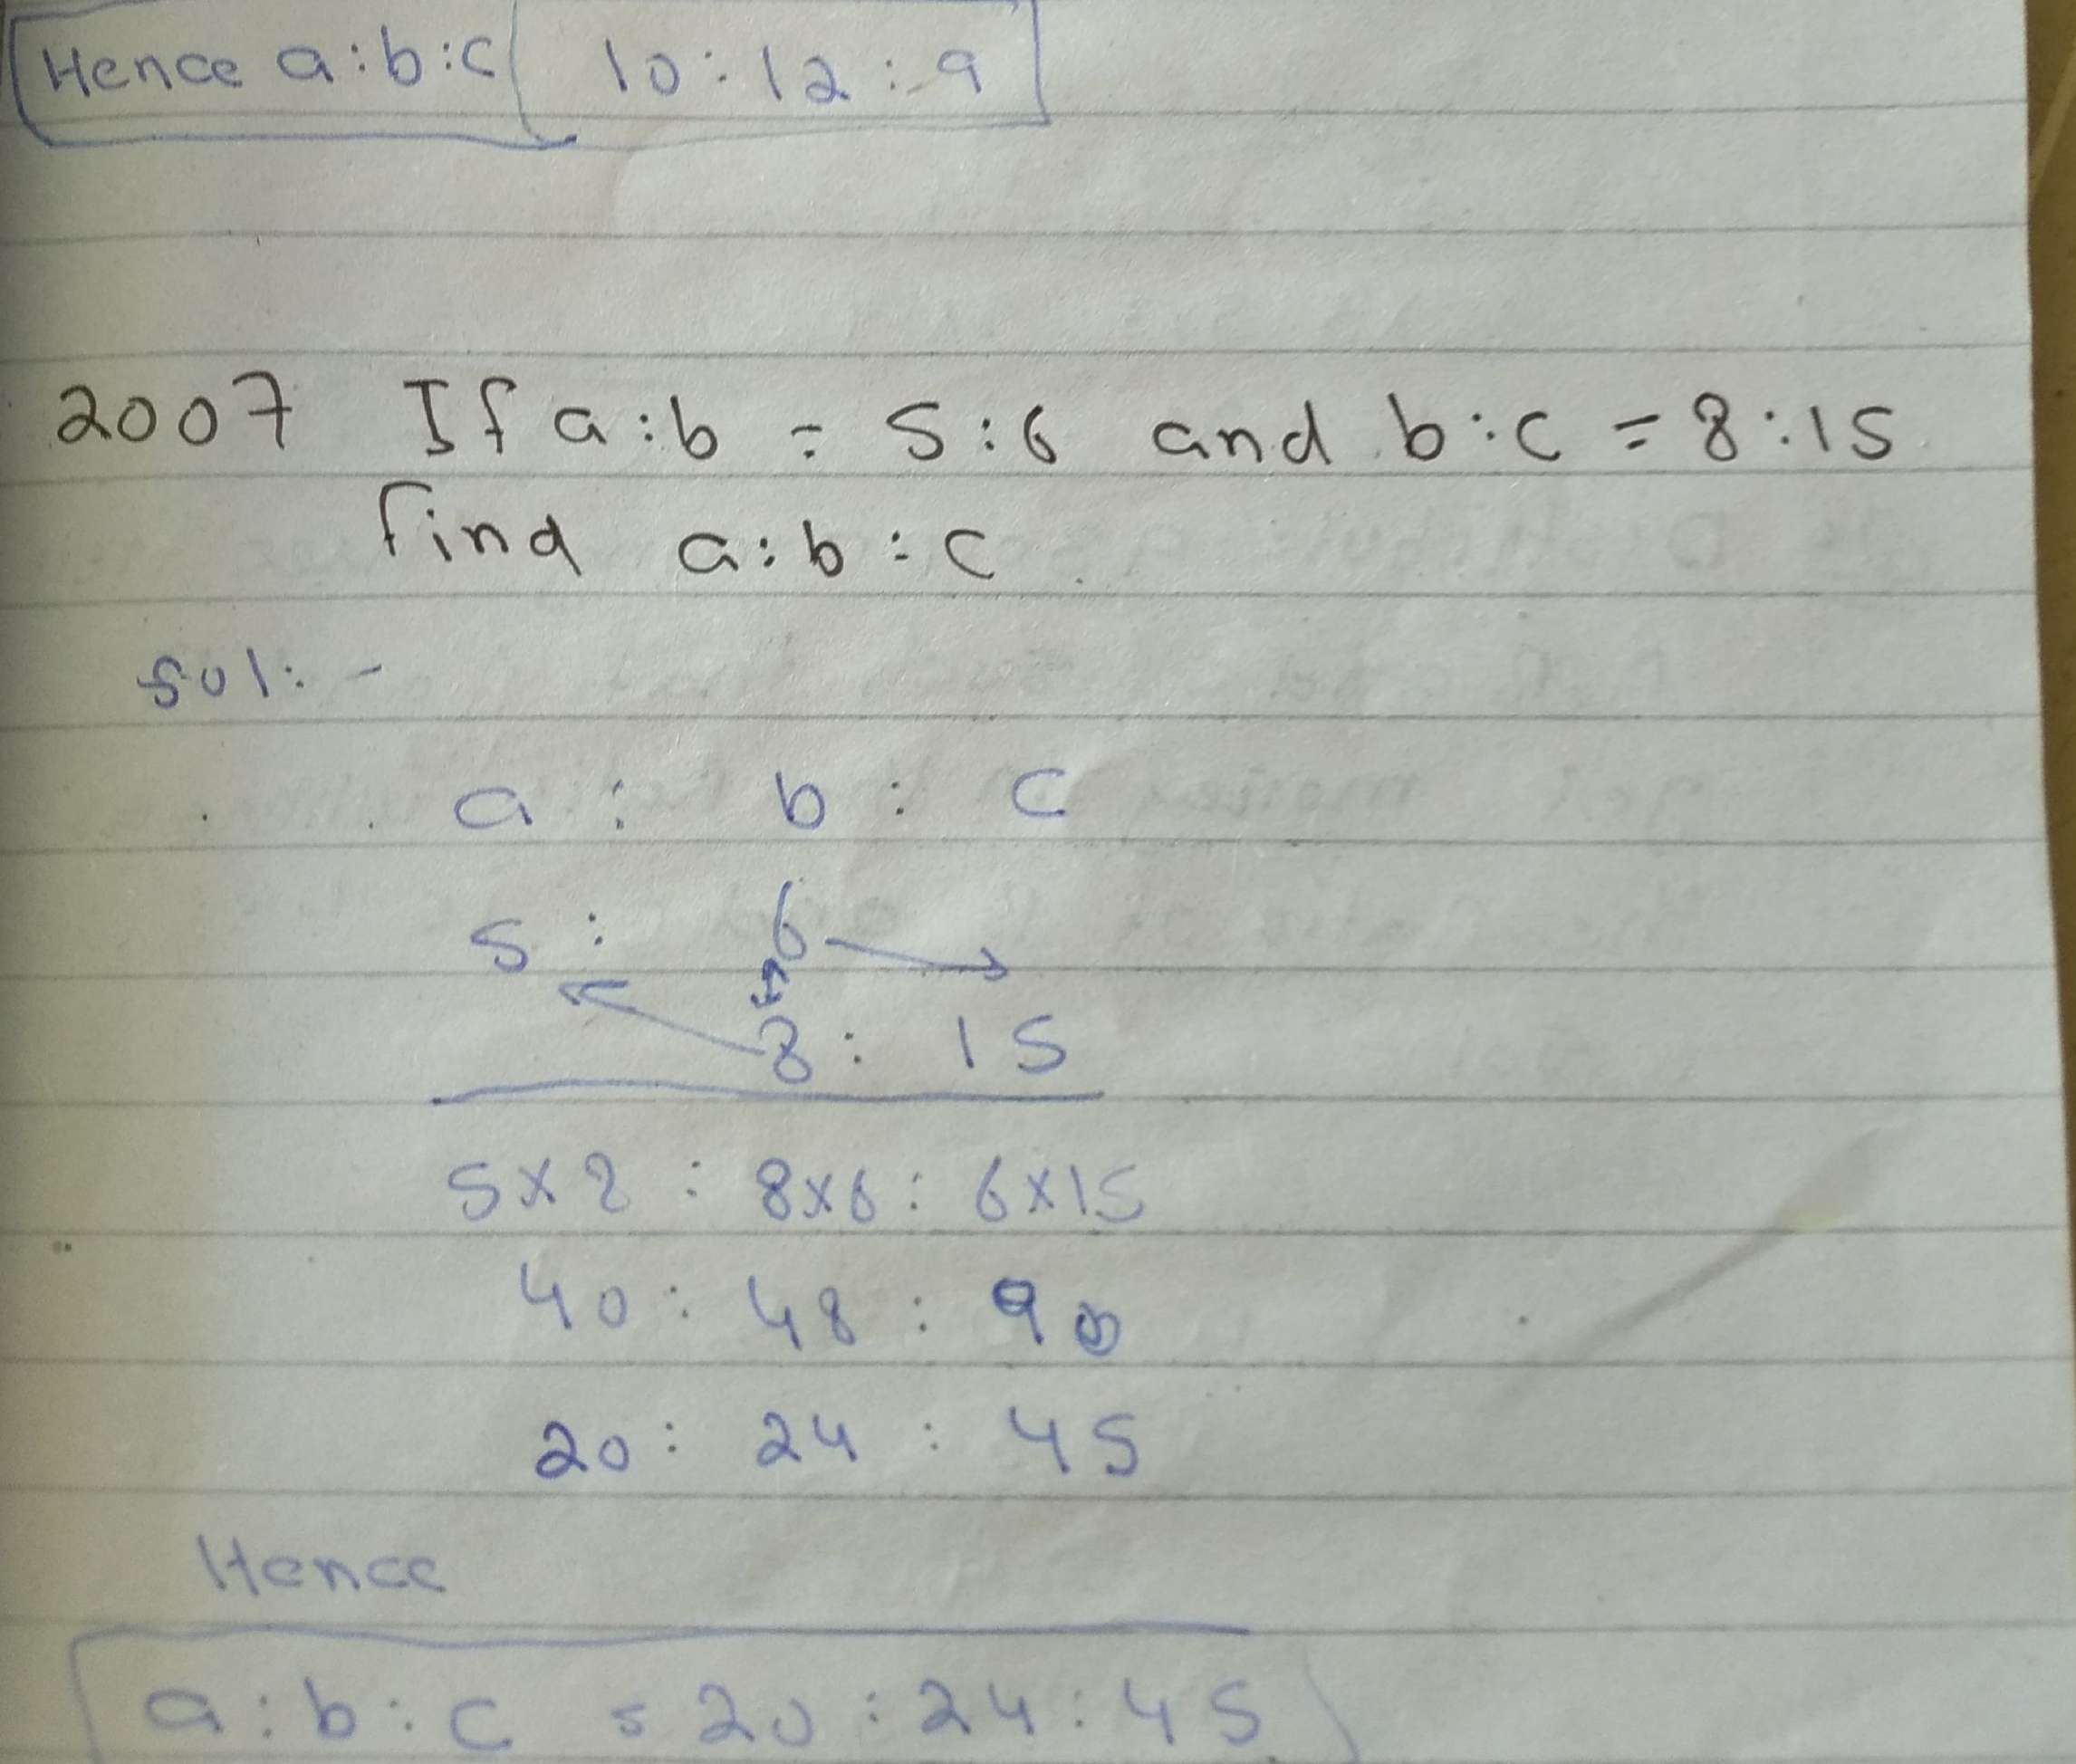 Hence a:b:c 10:12:9
2007 If a:b = 5:6 and b:c = 8:15
find a:b:c
Sol:-
a : b : c
5 : 6
8 : 15
5x8 : 8x6 : 6x15
40 : 48 : 90
20 : 24 : 45
Hence
a:b:c = 20:24:45